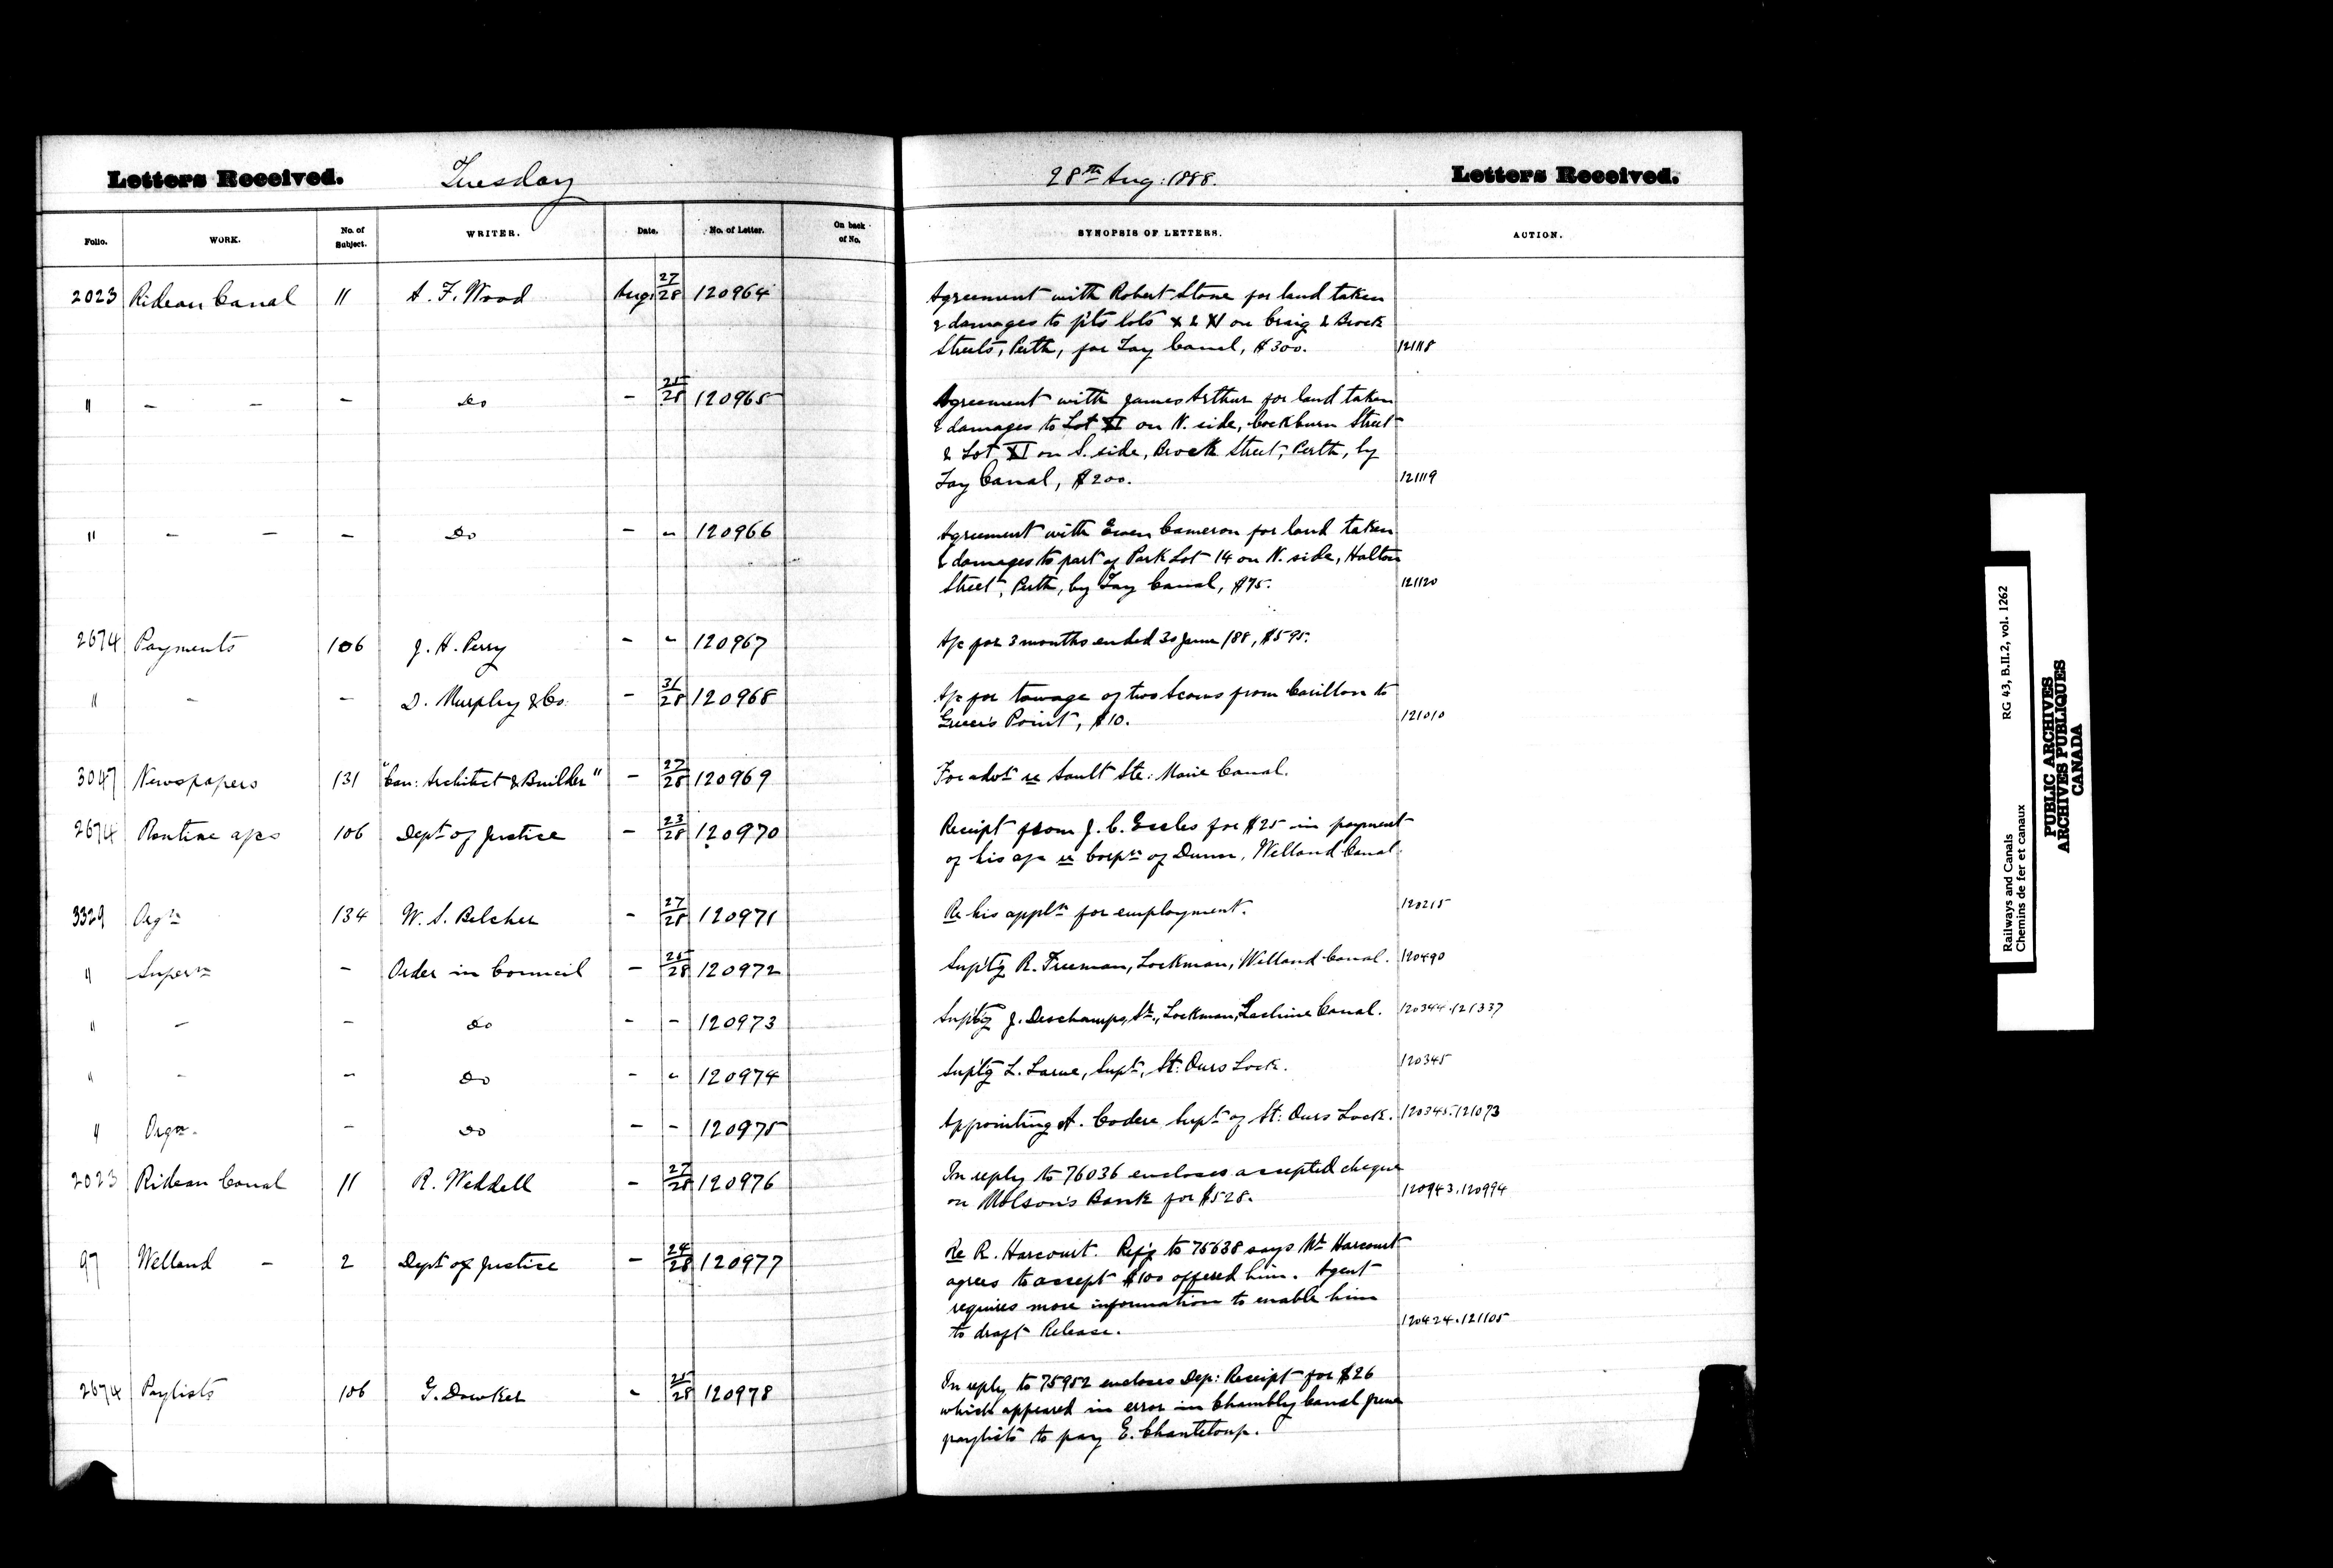 Letters Received. Tuesday 28th Aug: 1888. Letters Received.
Folio. WORK. No. of Subject. WRITER. Date. No. of Letter. On back of No. SYNOPSIS OF LETTERS. ACTION.
2023 Rideau Canal 11 A. F. Wood Aug: 27/28 120964 Agreement with Robert Stone for land taken
& damages to pts lots X & XI on Craig & Brock
Streets, Perth, for Tay Canal, $300. 121118
" - - - Do - 25/28 120965 Agreement with James Arthur for land taken
& damages to Lot XI on N. side, Cockburn Street
& Lot XI on S. side, Brock Street, Perth, by
Tay Canal, $200. 121119
" - - - Do - " 120966 Agreement with Ewen Cameron for land taken
& damages to part of Park Lot 14 on N. side, Halton
Street, Perth, by Tay Canal, $75. 121120
2674 Payments 106 J. H. Perry - " 120967 A/c for 3 months ended 30 June /88, $595.
" - - D. Murphy & Co. - 31/28 120968 A/c for towage of two scows from Carillon to
Greece's Point, $10. 121010
3047 Newspapers 131 "Can: Architect & Builder" - 27/28 120969 For advt re Sault Ste: Marie Canal.
2674 Routine a/cs 106 Dept of Justice - 23/28 120970 Receipt from J. C. Eccles for $25 in payment
of his a/c re Corpn of Dunn, Welland Canal.
3329 Orgn 134 W. S. Belcher - 27/28 120971 Re his appln for employment. 120215
" Supern - Order in Council - 25/28 120972 Sup'tg R. Freeman, Lockman, Welland Canal. 120490
" - - Do - - 120973 Sup'tg J. Deschamps, Sr., Lockman, Lachine Canal. 120344.121337
" - - Do - " 120974 Sup'tg L. Larue, Supt, St: Ours Lock. 120345
" Orgn. - Do - - 120975 Appointing A. Codere Supt of St: Ours Lock. 120345.121073
2023 Rideau Canal 11 R. Weddell - 27/28 120976 In reply to 76036 encloses accepted cheque
on Molson's Bank for $528. 120943.120994
97 Welland - 2 Dept of Justice - 24/28 120977 Re R. Harcourt. Ref'g to 75638 says Mr Harcourt
agrees to accept $100 offered him. Agent
requires more information to enable him
to draft Release. 120424.121105
2674 Paylists 106 G. Dawker - 25/28 120978 In reply to 75952 encloses Dep: Receipt for $26
which appeared in error in Chambly Canal June
paylists to pay E. Chanteloup.
Railways and Canals RG 43, B.II.2, vol. 1262
Chemins de fer et canaux
PUBLIC ARCHIVES
ARCHIVES PUBLIQUES
CANADA